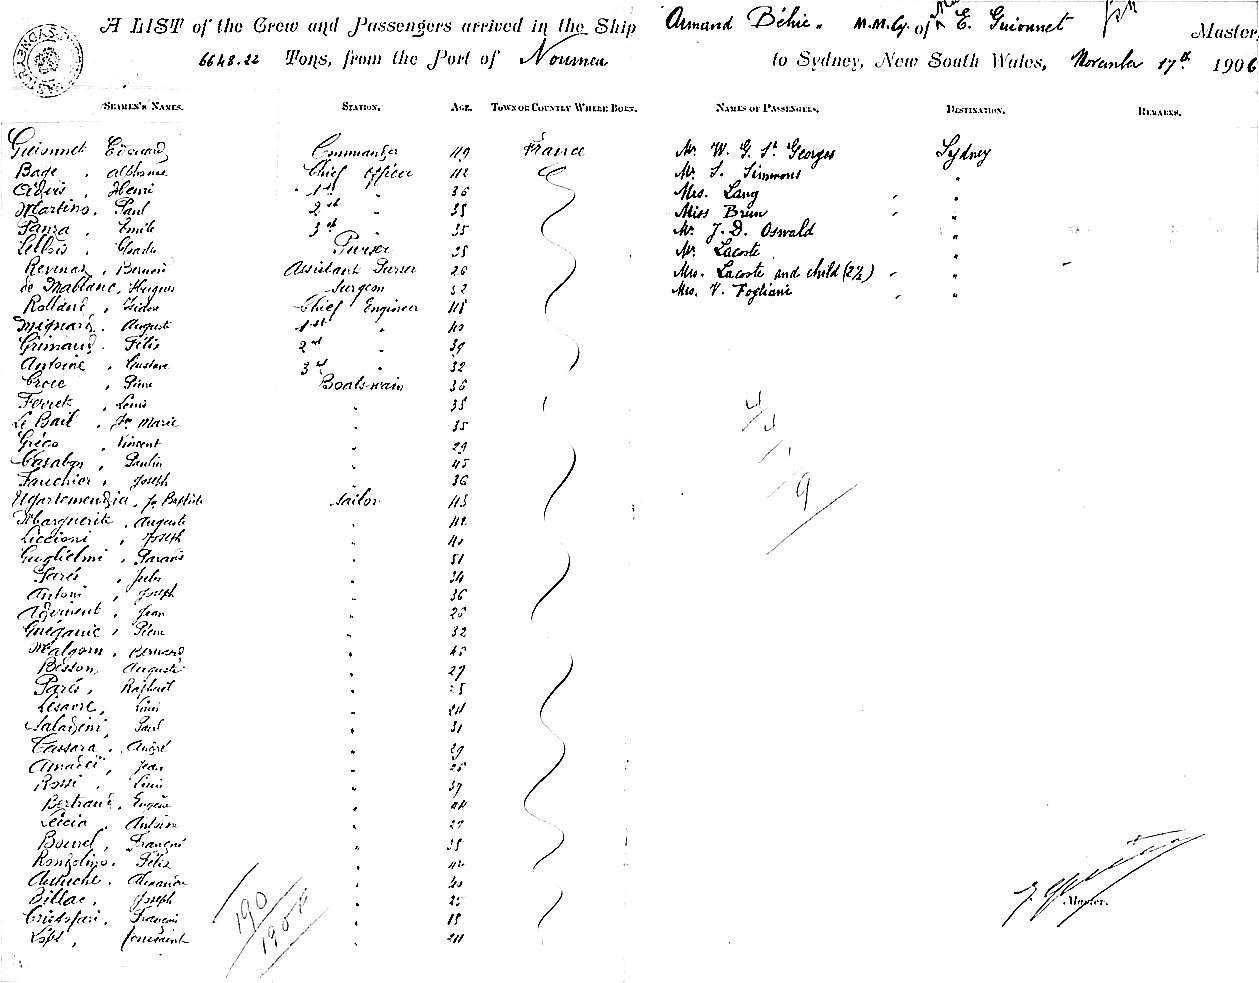 A LIST of the Crew and Passengers arrived in the Ship Armand Béhic. M.M.Cy. of E. Guionnet Master,
6648.22 Tons, from the Port of Noumea to Sydney, New South Wales, November 17th 1906
SEAMEN'S NAMES. STATION. AGE. TOWN OR COUNTRY WHERE BORN. NAMES OF PASSENGERS. DESTINATION. REMARKS.
Guionnet Edouard Commander 49 France Mr. W. G. St. Georges Sydney
Bage, Alphonse Chief Officer 42 Mr. S. Simmons "
Henri 1st " 36 Mrs. Lang "
Martino, Paul 2nd " 35 Miss Brun "
Emile 3rd 35 Mr. J. D. Oswald "
Charles Purser Mr. Lacoste "
Bernard Assistant Purser Mrs. Lacoste and child (2½) "
de Mablanc, Hugues Surgeon 32 Mrs. V. Fogliani "
Rolland, Isidore Chief Engineer 48
Mignard, Auguste 1st " 40
Grimaud, Félix 2nd " 39
Antoine, Gustave 3rd " 32
Croce, Pierre Boatswain 36
Ferret, Louis " 35
Le Bail, Jn Marie " 35
Gréco, Vincent " 29
Casabon, Paulin " 45
Fauchier, Joseph " 36
Ugartemendia, Jn Baptiste Sailor 43
Marguerite, Auguste " 42
Liccioni, Joseph " 40
Guglielmi, " 51
Parés, Jules " 34
Antoni, Joseph " 36
Jean "
Guéganic, Pierre " 32
Malgorn, Bernard " 45
Besson, Auguste " 27
Parés, Raphael "
Louis "
Saladini, Paul " 31
Cassara, André " 29
Jean "
Rossi, Louis " 39
Bertrand, Eugène "
Leccia, Antoine " 27
Bourel, François "
Félix "
Alexandre " 40
Billac, Joseph " 25
François "
Toussaint "
4/4
9
190
1906
Master.